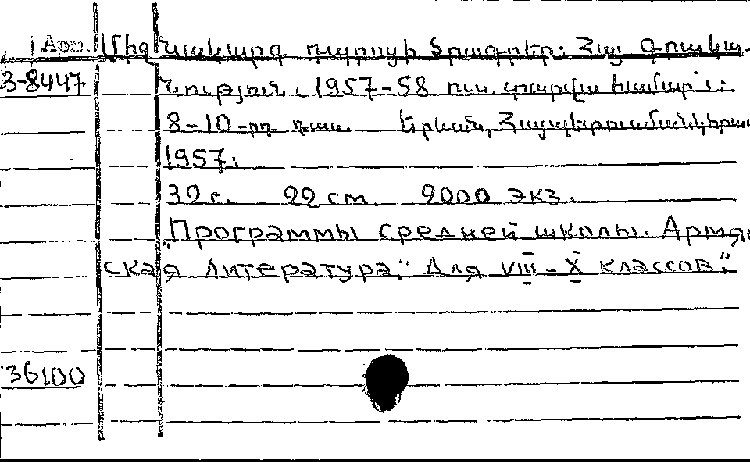 Арм. Միջնակարգ դպրոցի ծրագրեր: Հայ գրակա-
3-8447 նություն. 1957-58 ուս. տարվա համար:
8-10-րդ դաս. Երևան, Հայպետուսմանկհրատ
1957.
32 с. 22 см. 2000 экз.
"Программы средней школы. Армян
ская литература." Для VIII-X классов".
36100